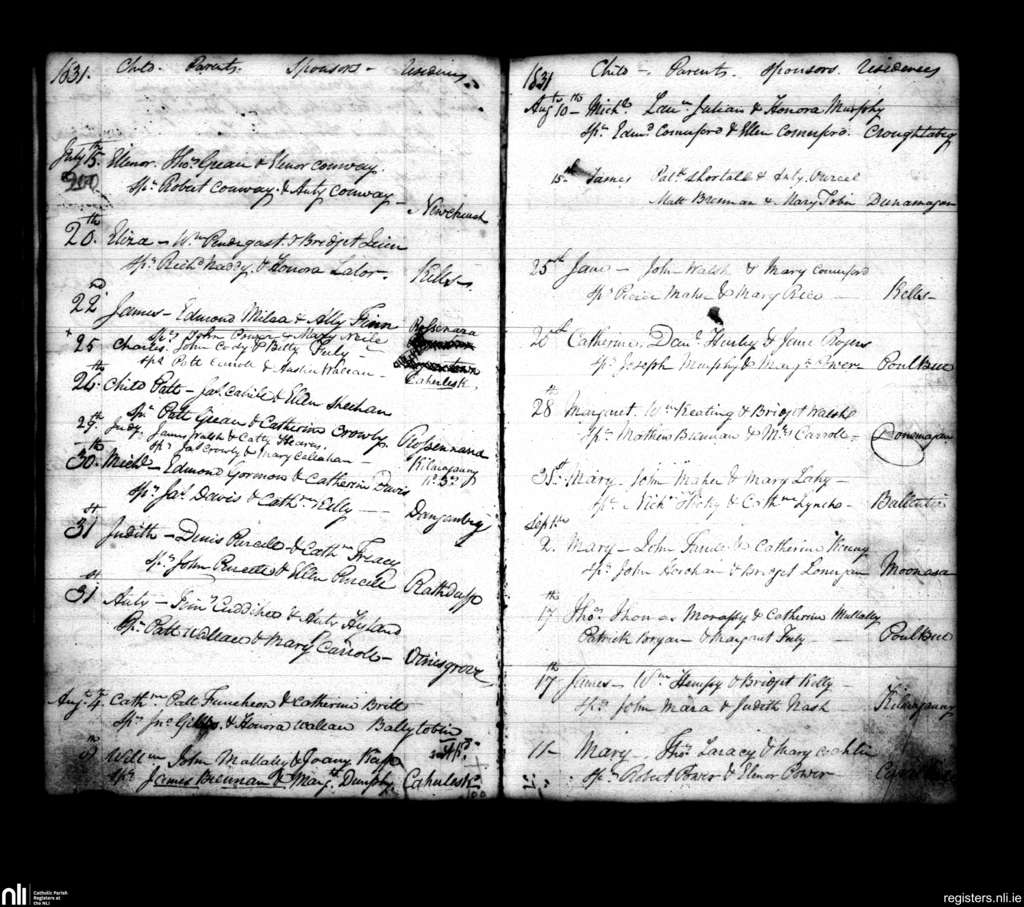 1831. Child. Parents. Sponsors - residences
July 15th Ellenor. Thos Grean & Elenor Conway.
200 Sps Robert Conway. & Anty Conway - Newchurch
20th Eliza - Wm Pendergast. & Bridget
Sps Richd Naddy. & Honora Lalor. Kells
22nd James - Edmond & Ally Finn
Sps John Power & Mary Neile Rossenara
25 Charles. John Cody & Betty July
Sps Patt Carroll & Wallean - Cahulesk.
24th Child Patt - Jas Cahile & Ellen Sheehan
Sps Patt Grean & Catherine Crowly Rossennara
29th Judy. James Walsh & Catty
Sps Jas Crowly & Mary Callahan - Kilmaganny
30th Michl - Edmond Gormon & Catherine Davis
Sps Jas Davis & Cathne Kelly - Danganbeg
31st Judith - Denis Purcele & Cathne Treacy
Sps John Purcell & Ellen Purcell Rathduff
31st Anty - Cuddihee & Anty Hyland
Sps Patt Wallace & Mary Carrole -
Augt 4th Cathne Patt Funcheon & Catherine Brett
Sps Jno & Honora Wallean Ballytobin
8th Willim John Mallally & Joany
Sps James Brennan & Margt Dunphy Cahulesk
1831 Child - Parents. Sponsors. Residences
Augt 10th Michl Laun & Honora Murphy
Sps Edmd Comerford & Ellen Comerford. Croughtabeg
15th James Patk Shortall & Anty. Purcel
Matt Brennan & Mary Tobin Dunamagan
25th Jane - John Walsh & Mary Comerford
Sps Pierce Maher & Mary Rice - Kells -
26th Catherine, Danl Henby & Jane Rogers
Sps Joseph Murphy & Margt Power Poulkuc
28th Margaret. Wm Keating & Bridget Walsh
Sps Mathew Brennan & Mrs Carrole - Donemagan
31st Mary. John Maher & Mary Lahy -
Sps Nichs Hicky & Cathne Lyncho -
Septr
2. Mary - John & Catherine
Sps John & Bridget Lonergan Moonasa
17th Thos & Catherine Mullally
Patrick Bryan & Margret July - Poulkuc
17th James - Wm Hempsy & Bridget Kelly -
Sps John Mara & Judith Nash Kilmaganny
11 - Mary. Thos Laracy & Mary
Sps Robert Power & Elenor Power
nli
Catholic Parish
Registers at
the NLI
registers.nli.ie